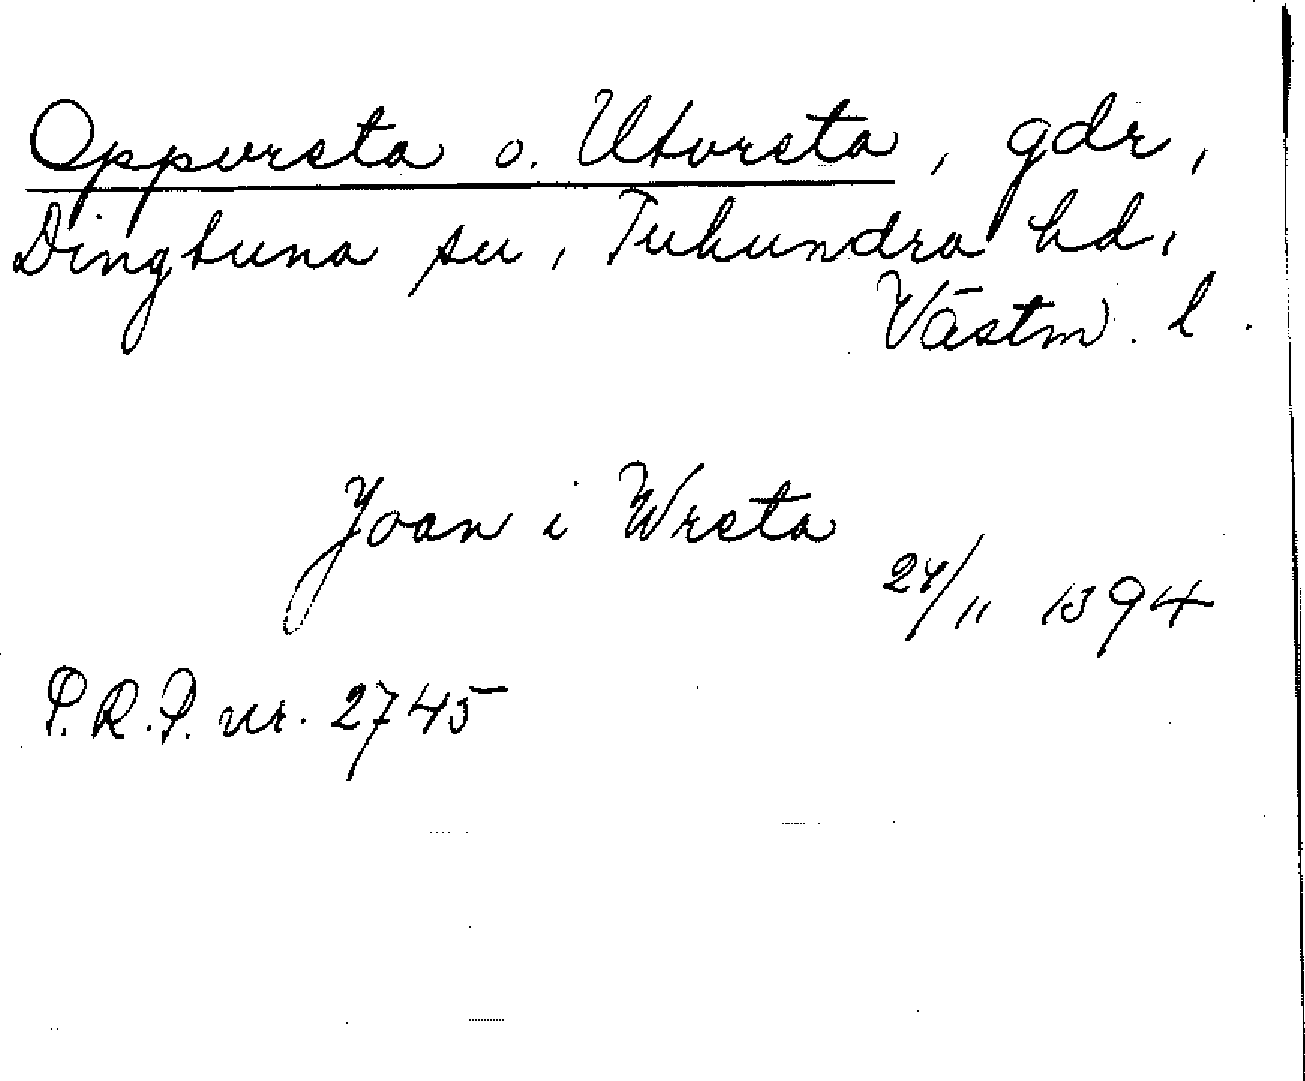 Oppvrsta o. Utvrsta, gdr,
Dingtuna sn, Tuhundra hd,
Västm. l.
Joan i Wrsta
24/11 1394
P.R.P. nr. 2745